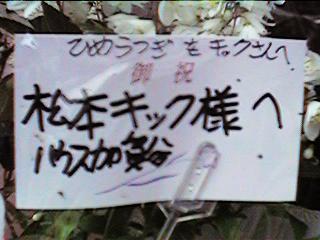 ひめうつぎをキックさんへ
御祝
松本キック様へ
ハウスカ加賀谷